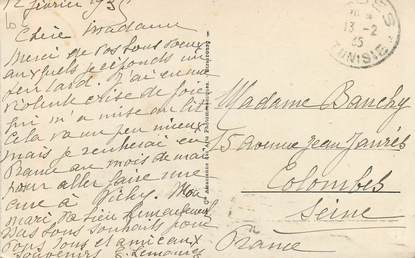 12 février 1935
Chère Madame
Merci de vos bons voeux
auxquels je réponds un
peu tard. J'ai eu une
violente crise de foie
qui m'a mise au lit
Cela va un peu mieux
mais je rentrerai en
France au mois de mai
pour aller faire une
cure à Vichy. Mon
mari va bien heureusement
vous tous et amicaux
souvenirs E. Lemoine
13-2
35
TUNISIE
Madame Banchy
75 avenue Jean Jaurès
Colombes
Seine
France